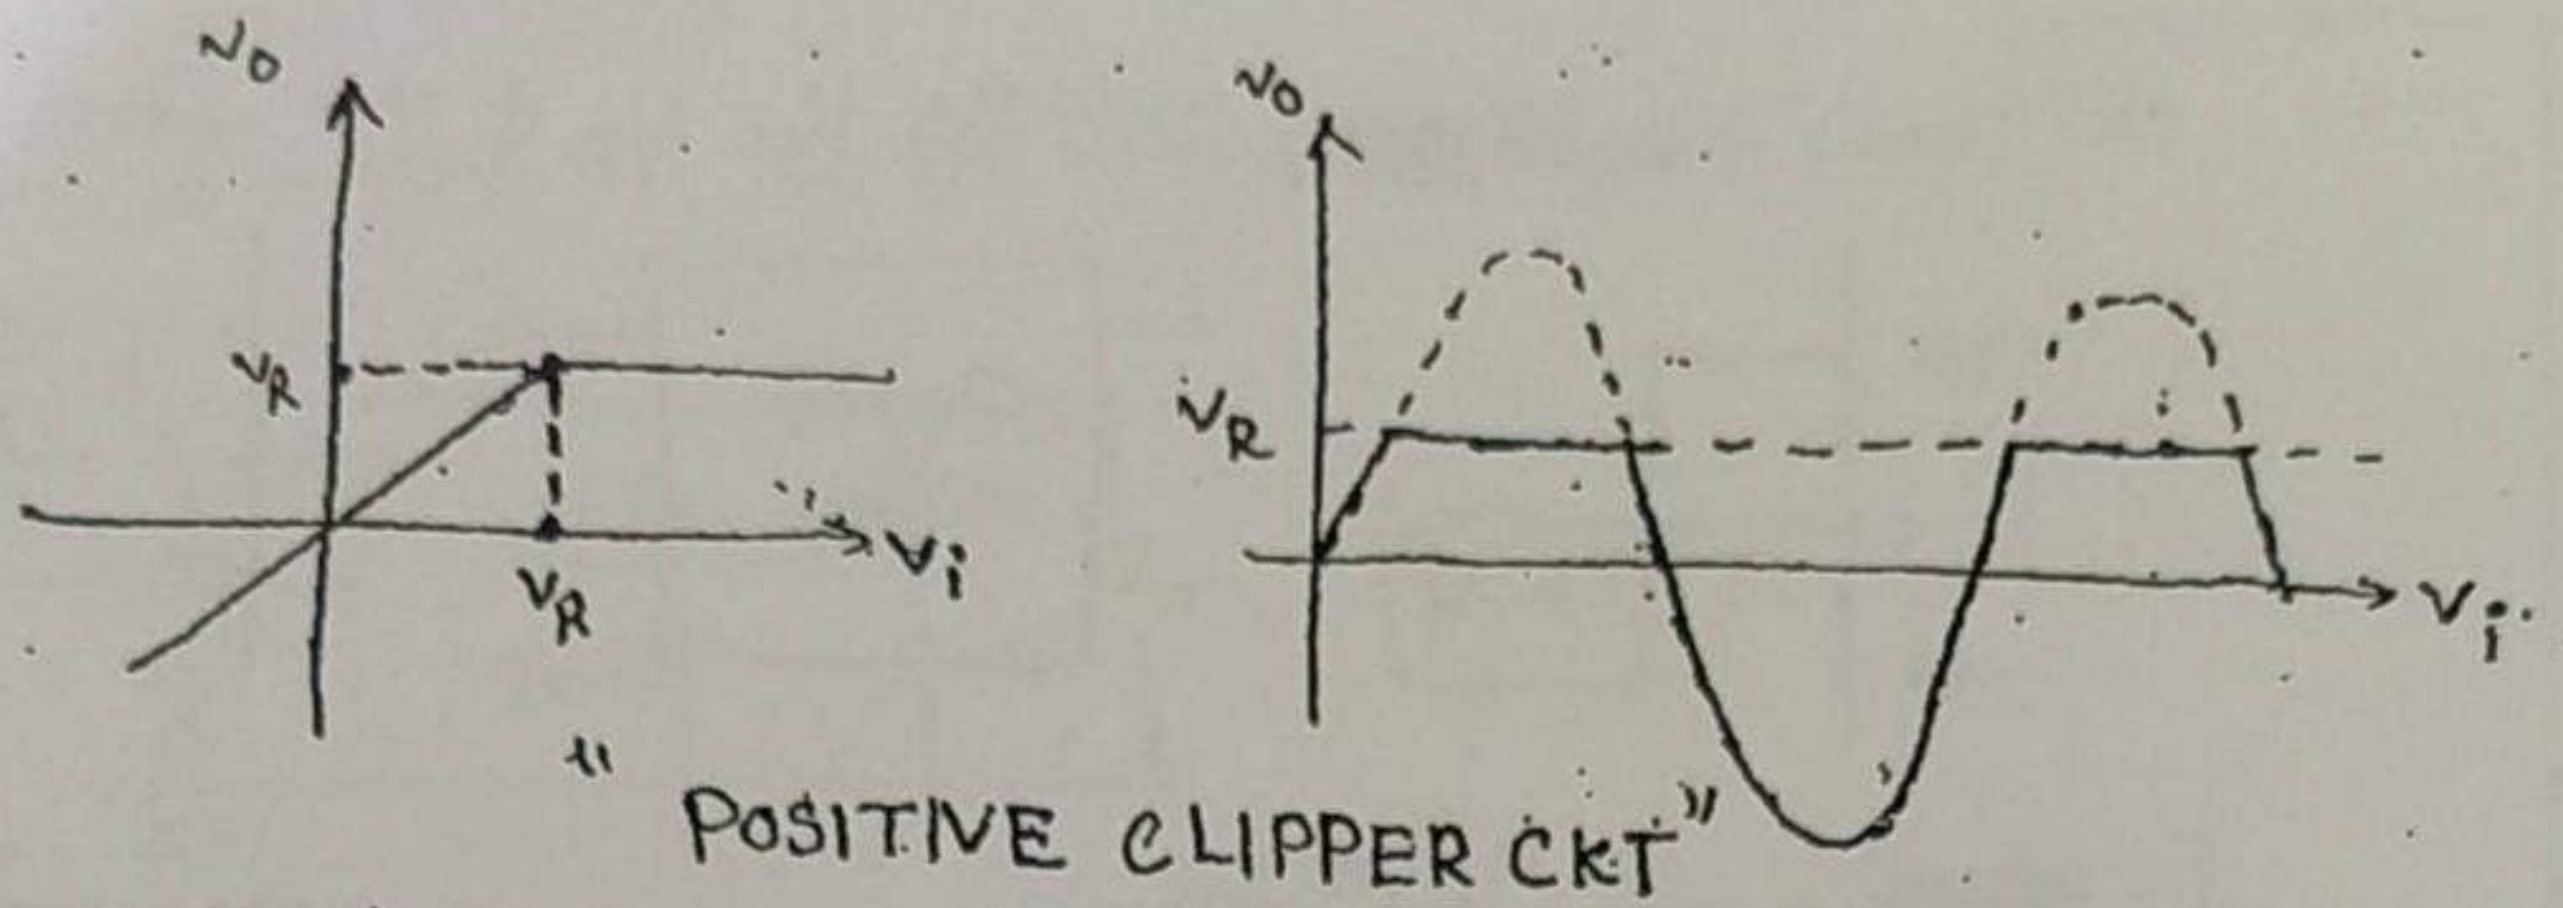 vo
vo
VR
VR
Vi
VR
Vi
" POSITIVE CLIPPER CKT "